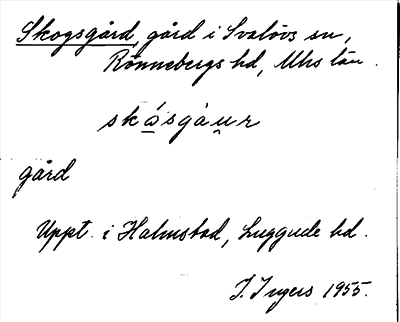 Skogsgård, gård i Svalövs sn,
Rönnebergs hd, Mhs län.
skåsgàur
gård
Uppt. i Halmstad, Luggude hd.
I. Ingers 1955.